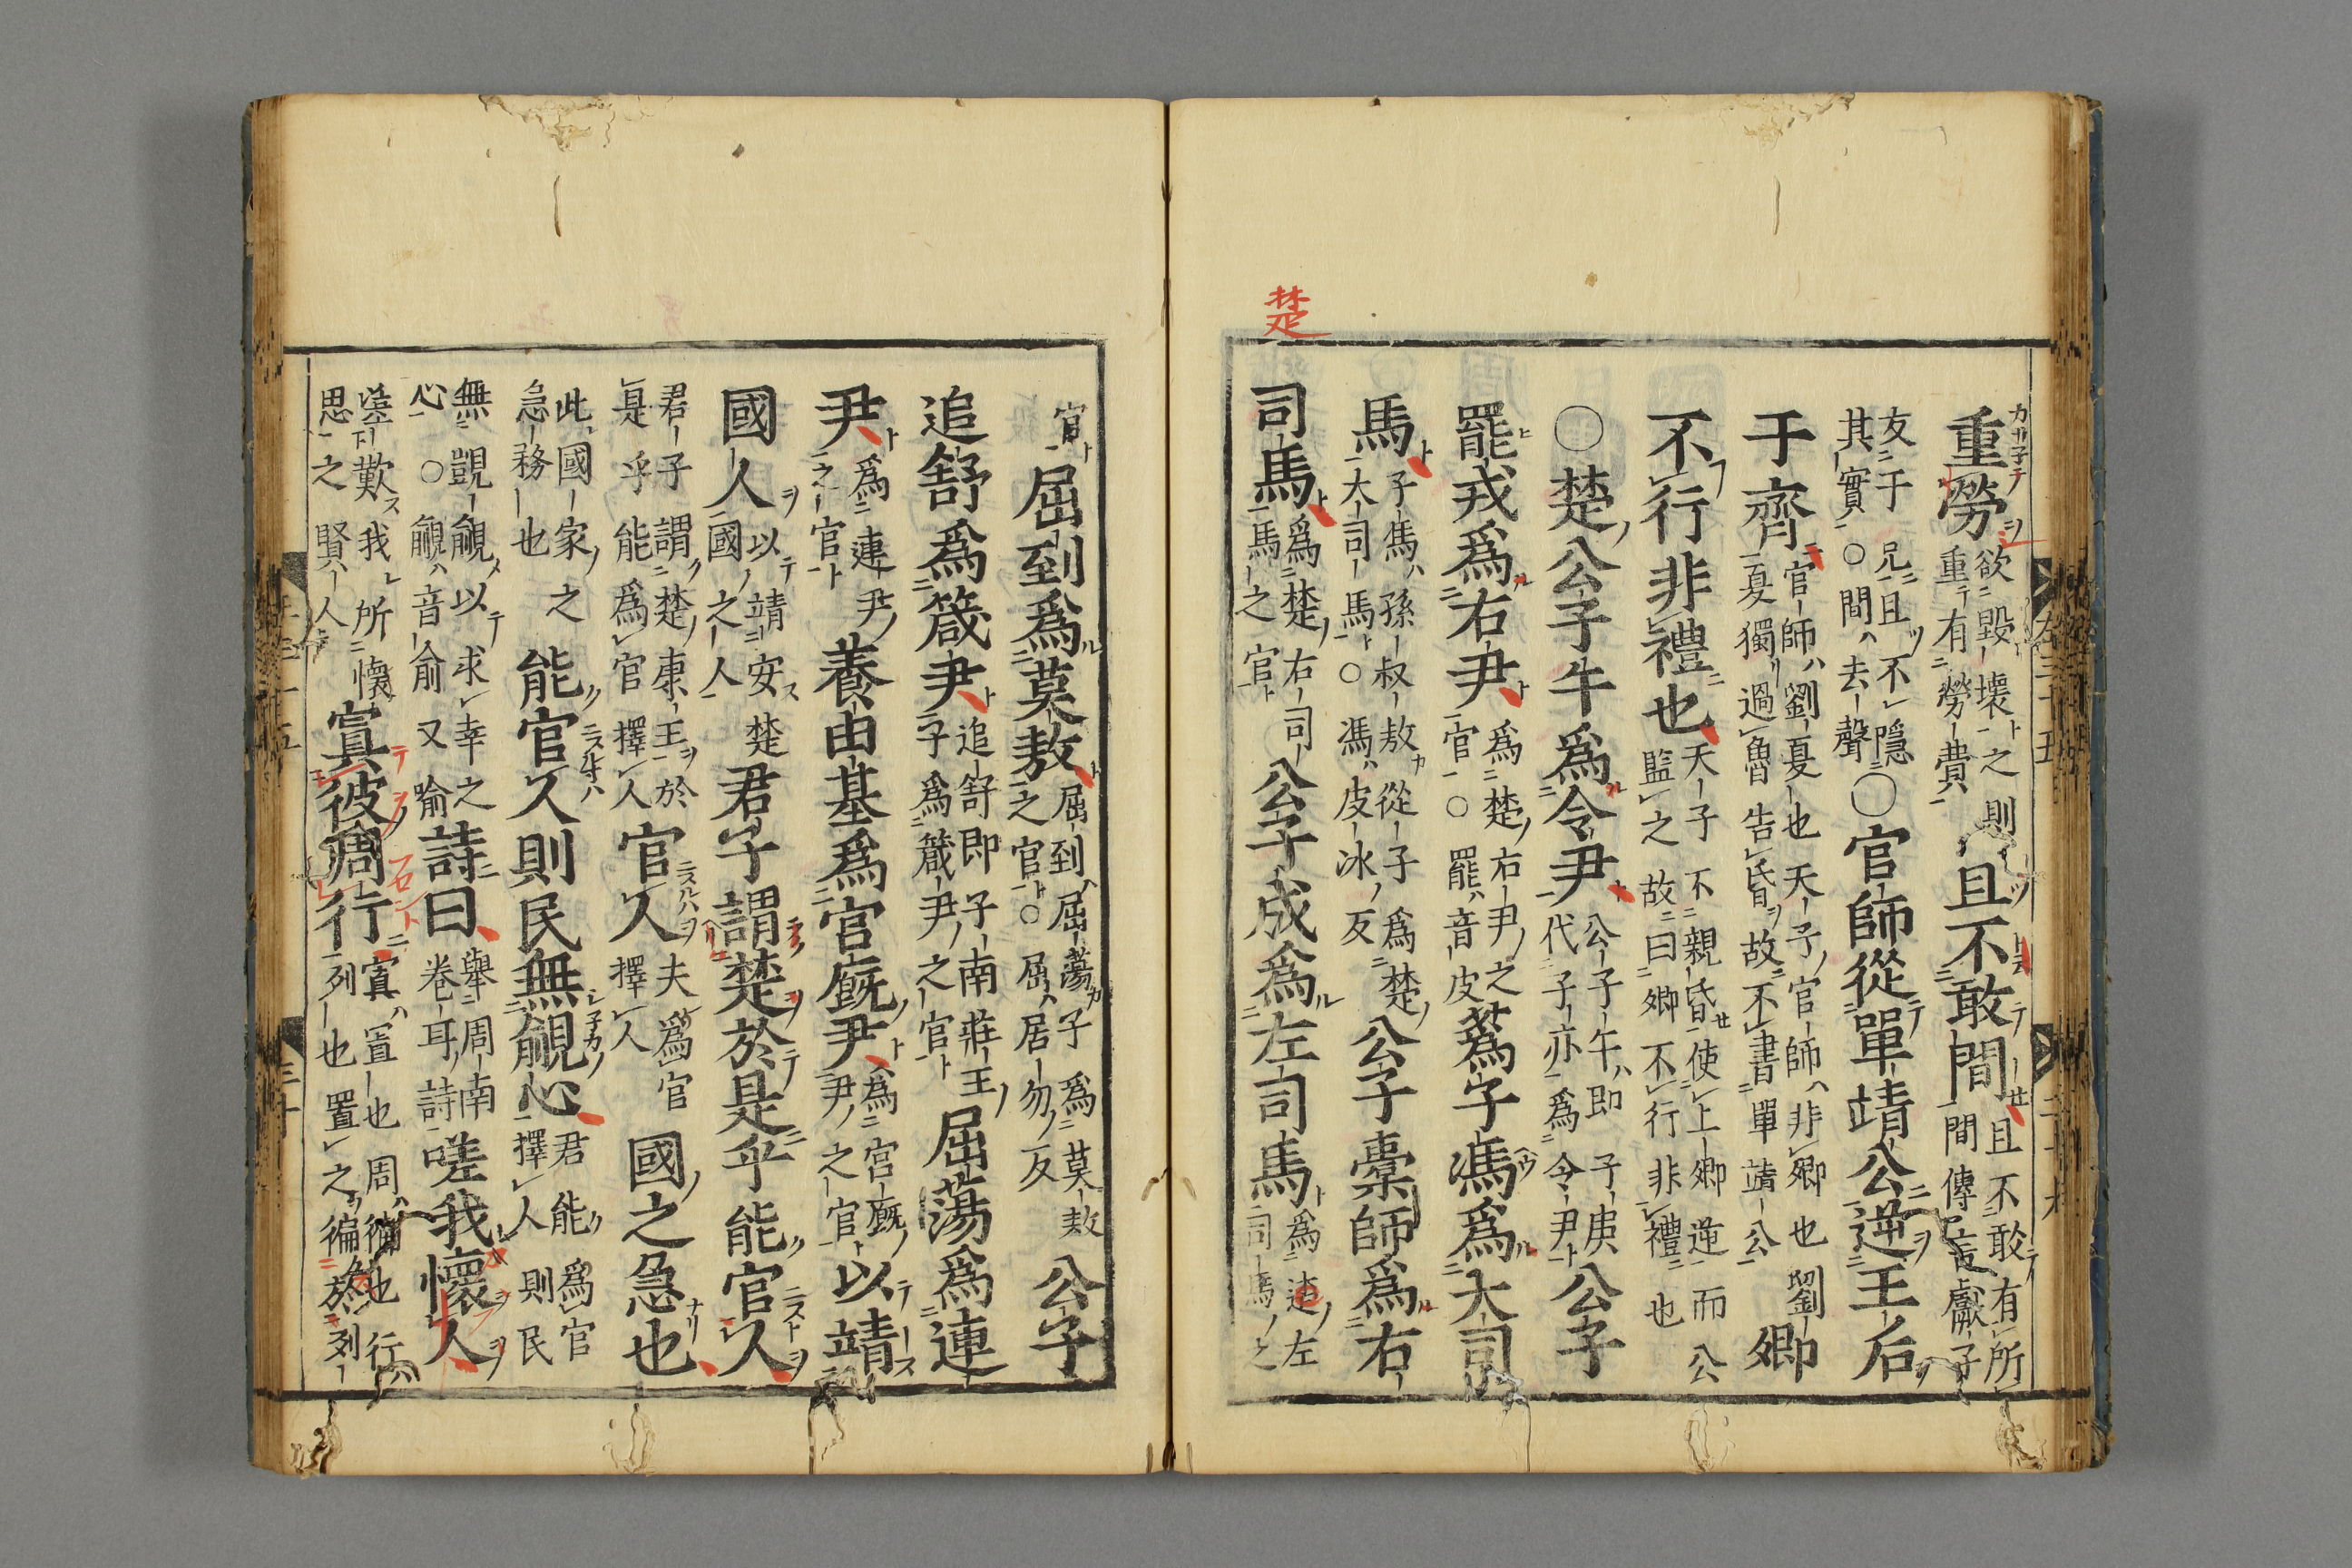 楚
重勞欲毀壞之則重有勞費且不敢間且不敢有所間傳言獻子
友于兄且不隱其實○間去聲○官師從單靖公逆王后
于齊官師劉夏也天子官師非卿也劉夏獨過魯告昏故不書單靖公卿
不行非禮也天子不親昏使上卿逆而公監之故曰卿不行非禮也
○楚公子午爲令尹公子午即子庚代子亦爲令尹公子
罷戎爲右尹爲楚右尹之官○罷音皮蒍子馮爲大司
馬子馮孫叔敖從子爲楚大司馬○馮皮冰反公子橐師爲右
司馬爲楚右司馬之官公子成爲左司馬爲楚左司馬之
官屈到爲莫敖屈到屈蕩子爲莫敖之官○屈居勿反公子
追舒爲箴尹追舒即子南莊王子爲箴尹之官屈蕩爲連
尹爲連尹之官養由基爲宮廐尹爲宮廐尹之官以靖
國人以靖安楚國之人君子謂楚於是乎能官人
君子謂楚康王於是乎能爲官擇人官人夫爲官擇人國之急也
此國家之急務也能官人則民無覦心君能爲官擇人則民
無覬覦以求幸之心○覦音俞又喻詩曰舉周南卷耳詩嗟我懷人
嗟歎我所懷思之賢人寘彼周行寘置也周徧也行列也置之徧於列